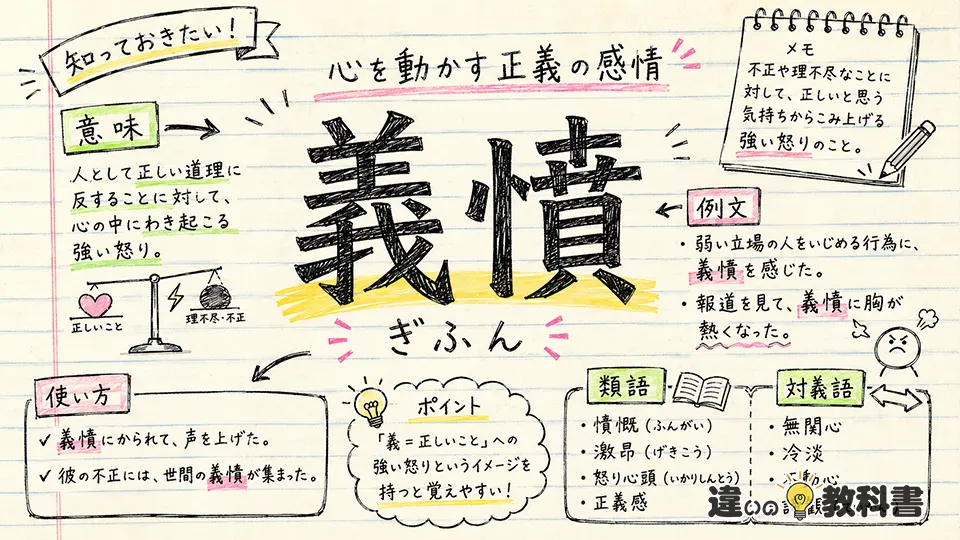 知っておきたい!
心を動かす正義の感情
メモ
不正や理不尽なことに
対して、正しいと思う
気持ちからこみ上げる
強い怒りのこと。
意味
人として正しい道理に
反することに対して、
心の中にわき起こる
強い怒り。
正しいこと
理不尽・不正
義憤
ぎふん
例文
・弱い立場の人をいじめる行為に、
義憤を感じた。
・報道を見て、義憤に胸が
熱くなった。
使い方
✓ 義憤にかられて、声を上げた。
✓ 彼の不正には、世間の義憤が集まった。
ポイント
「義=正しいこと」への
強い怒りというイメージを
持つと覚えやすい!
類語
・憤慨(ふんがい)
・激昂(げきこう)
・怒り心頭(いかりしんとう)
・正義感
対義語
・無関心
・冷淡
違いの教科書